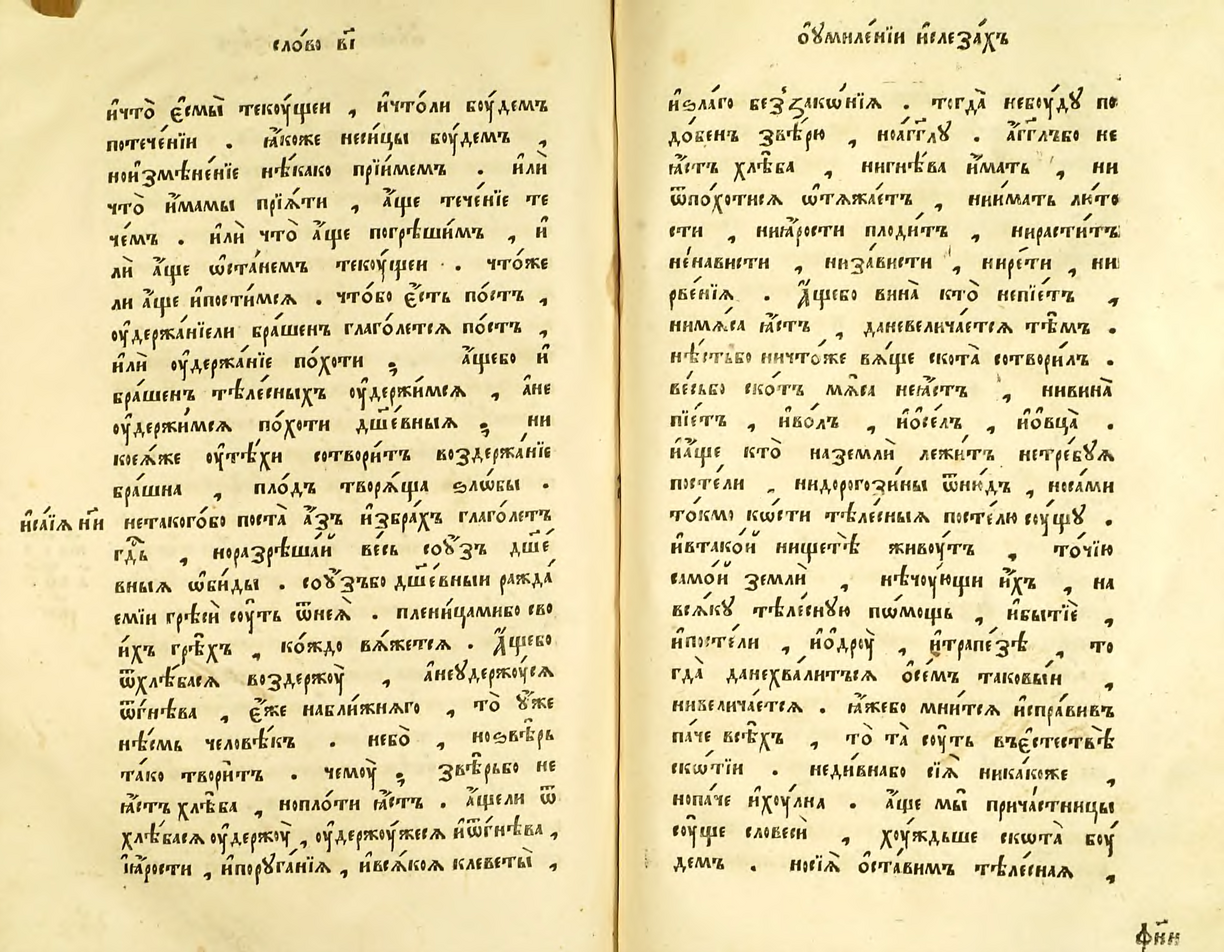 сло́во в҃і
и҆что̀ є҆смы̀ текоу́щеи , и҆что́ли боу́демъ
потече́нїи . ꙗ҆́коже неси́цы боу́демъ ,
ной҆змѣне́нїе нѣ́како прїи́мемъ . и҆лѝ
что̀ и҆́мамы прїѧ́ти , а҆́ще тече́нїе те
че́мъ . и҆лѝ что̀ а҆́ще погрѣши́мъ , и҆
лѝ а҆́ще ѡ҆ста́немъ текоу́щеи . что́же
ли а҆́ще и҆пости́мсѧ . что́бо є҆́сть по́стъ ,
оу҆держа́нїели бра́шенъ глаго́летсѧ по́стъ ,
и҆лѝ оу҆держа́нїе по́хоти ; а҆́щебо и҆
бра́шенъ тѣле́сныхъ оу҆держи́мсѧ , а҆́не
оу҆держи́мсѧ по́хоти дш҃е́вныѧ ; ни
коеѧ́же оу҆тѣ́хи сотвори́тъ воздержа́нїе
бра́шна , пло́дъ творѧ́ща ѕло́бы .
и҆са́їѧ н҃и
нетакого́бо поста̀ а҆́зъ и҆збра́хъ глаго́летъ
гдⷭ҇ь , норазрѣша́й ве́сь соу́зъ дш҃е́
вныѧ ѡ҆би́ды . соу́зъбо дш҃е́вныи ражда́
емїи грѣсѝ соу́ть ѿнеѧ̀ . плени́цамибо сво
и́хъ грѣ̑хъ , ко́ждо вѧ́жетсѧ . а҆́щебо
ѿхлѣ́басѧ воздержоу̀ , а҆неꙋдержоу́сѧ
ѿгнѣ́ва , є҆́же набли́жнѧго , то̀ ᲂу҆́же
нѣ́смь человѣ́къ . небо̀ , ноѕвѣ́рь
та́ко твори́тъ . чемоу̀ ; звѣ́рьбо не
ꙗ҆́стъ хлѣ́ба , нопло́ти ꙗ҆́стъ . а҆́щели ѿ
хлѣ́басѧ оу҆держоу̀ , оу҆держоу́жесѧ и҆ѿгнѣ́ва ,
и҆ꙗ҆́рости , и҆порꙋга́нїѧ , и҆всѧ́коѧ клеветы̀ ,
оу҆миле́нїи и҆слеза́хъ
и҆ѕла́го беззако́нїѧ . тогда̀ небоу́дꙋ по
до́бенъ звѣ́рю , ноа҆́гг҃лꙋ . а҆́гг҃лъбо не
ꙗ҆́стъ хлѣ́ба , нигнѣ́ва и҆́мать , ни
ѿпо́хотисѧ ѡ҆тѧжа́етъ , нии́мать лю́то
сти , ниꙗ҆́рости плоди́тъ , нирасти́тъ
не́нависти , низа́висти , нире́ти , ни
рве́нїѧ . а҆́щебо вина̀ кто̀ непїе́тъ ,
нимѧ́са ꙗ҆́стъ , даневелича́етсѧ тѣ́мъ .
нѣ́стьбо ничто́же вѧ́ще скота̀ сотвори́лъ .
ве́сьбо ско́тъ мѧ́са неꙗ҆́стъ , нивина̀
пїе́тъ , и҆во́лъ , и҆ѻ҆се́лъ , и҆ѻ҆вца̀ .
и҆а҆́ще кто̀ наземлѝ лежи́тъ нетре́бꙋѧ
посте́ли , нидорогози́ны ѿню́дъ , носа́ми
то́кмо ко́сти тѣле́сныѧ посте́лю соу́щꙋ .
и҆втако́й нищетѣ̀ живоу́тъ , то́чїю
само́й землѝ , нѣ́чоующи и҆́хъ , на
всѧ́кꙋ тѣле́сную по́мощь , и҆бытїѐ ,
и҆посте́ли , и҆ѻ҆дроу̀ , и҆трапе́зѣ , то
гда̀ данехва́литъсѧ ѻ҆се́мъ таковы́и ,
нивелича́етсѧ . ꙗ҆́жебо мни́тсѧ и҆спра́вивъ
па́че всѣ́хъ , то̀ та̀ соу́ть въє҆стествѣ̀
ско́тїи . неди́внабо сїѧ̀ ника́коже ,
нопа́че и҆хоу́лна . а҆́ще мы̀ прича́стницы
соу́ще словесѝ , хоу́ждьше скота̀ боу́
демъ . носїѧ̀ ѻ҆ста́вимъ тѣле́снаѧ ,